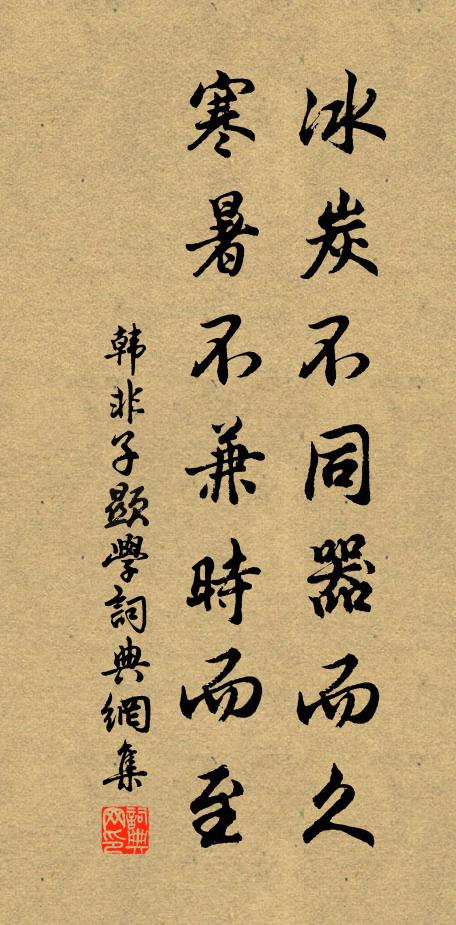 冰炭不同器而久
寒暑不兼時而至
韩非子顯學詞典網集
詞典网印